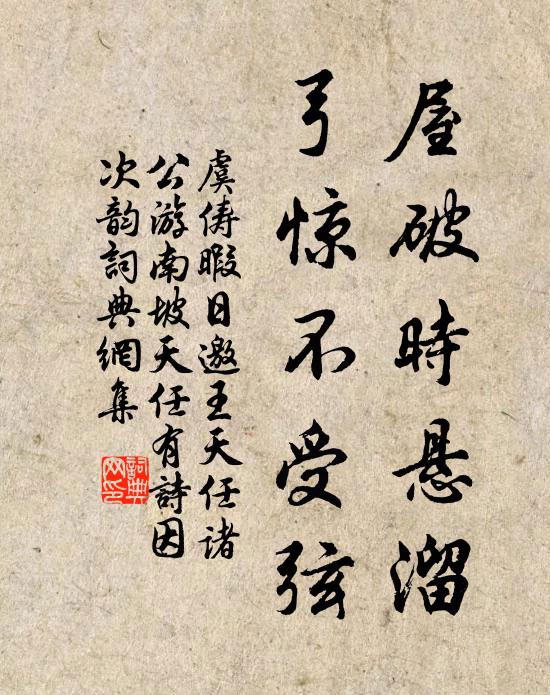 屋破時悬溜
弓惊不受弦
虞俦暇日邀王天任诸
公游南坡天任有詩因
次韵詞典網集
詞典网印